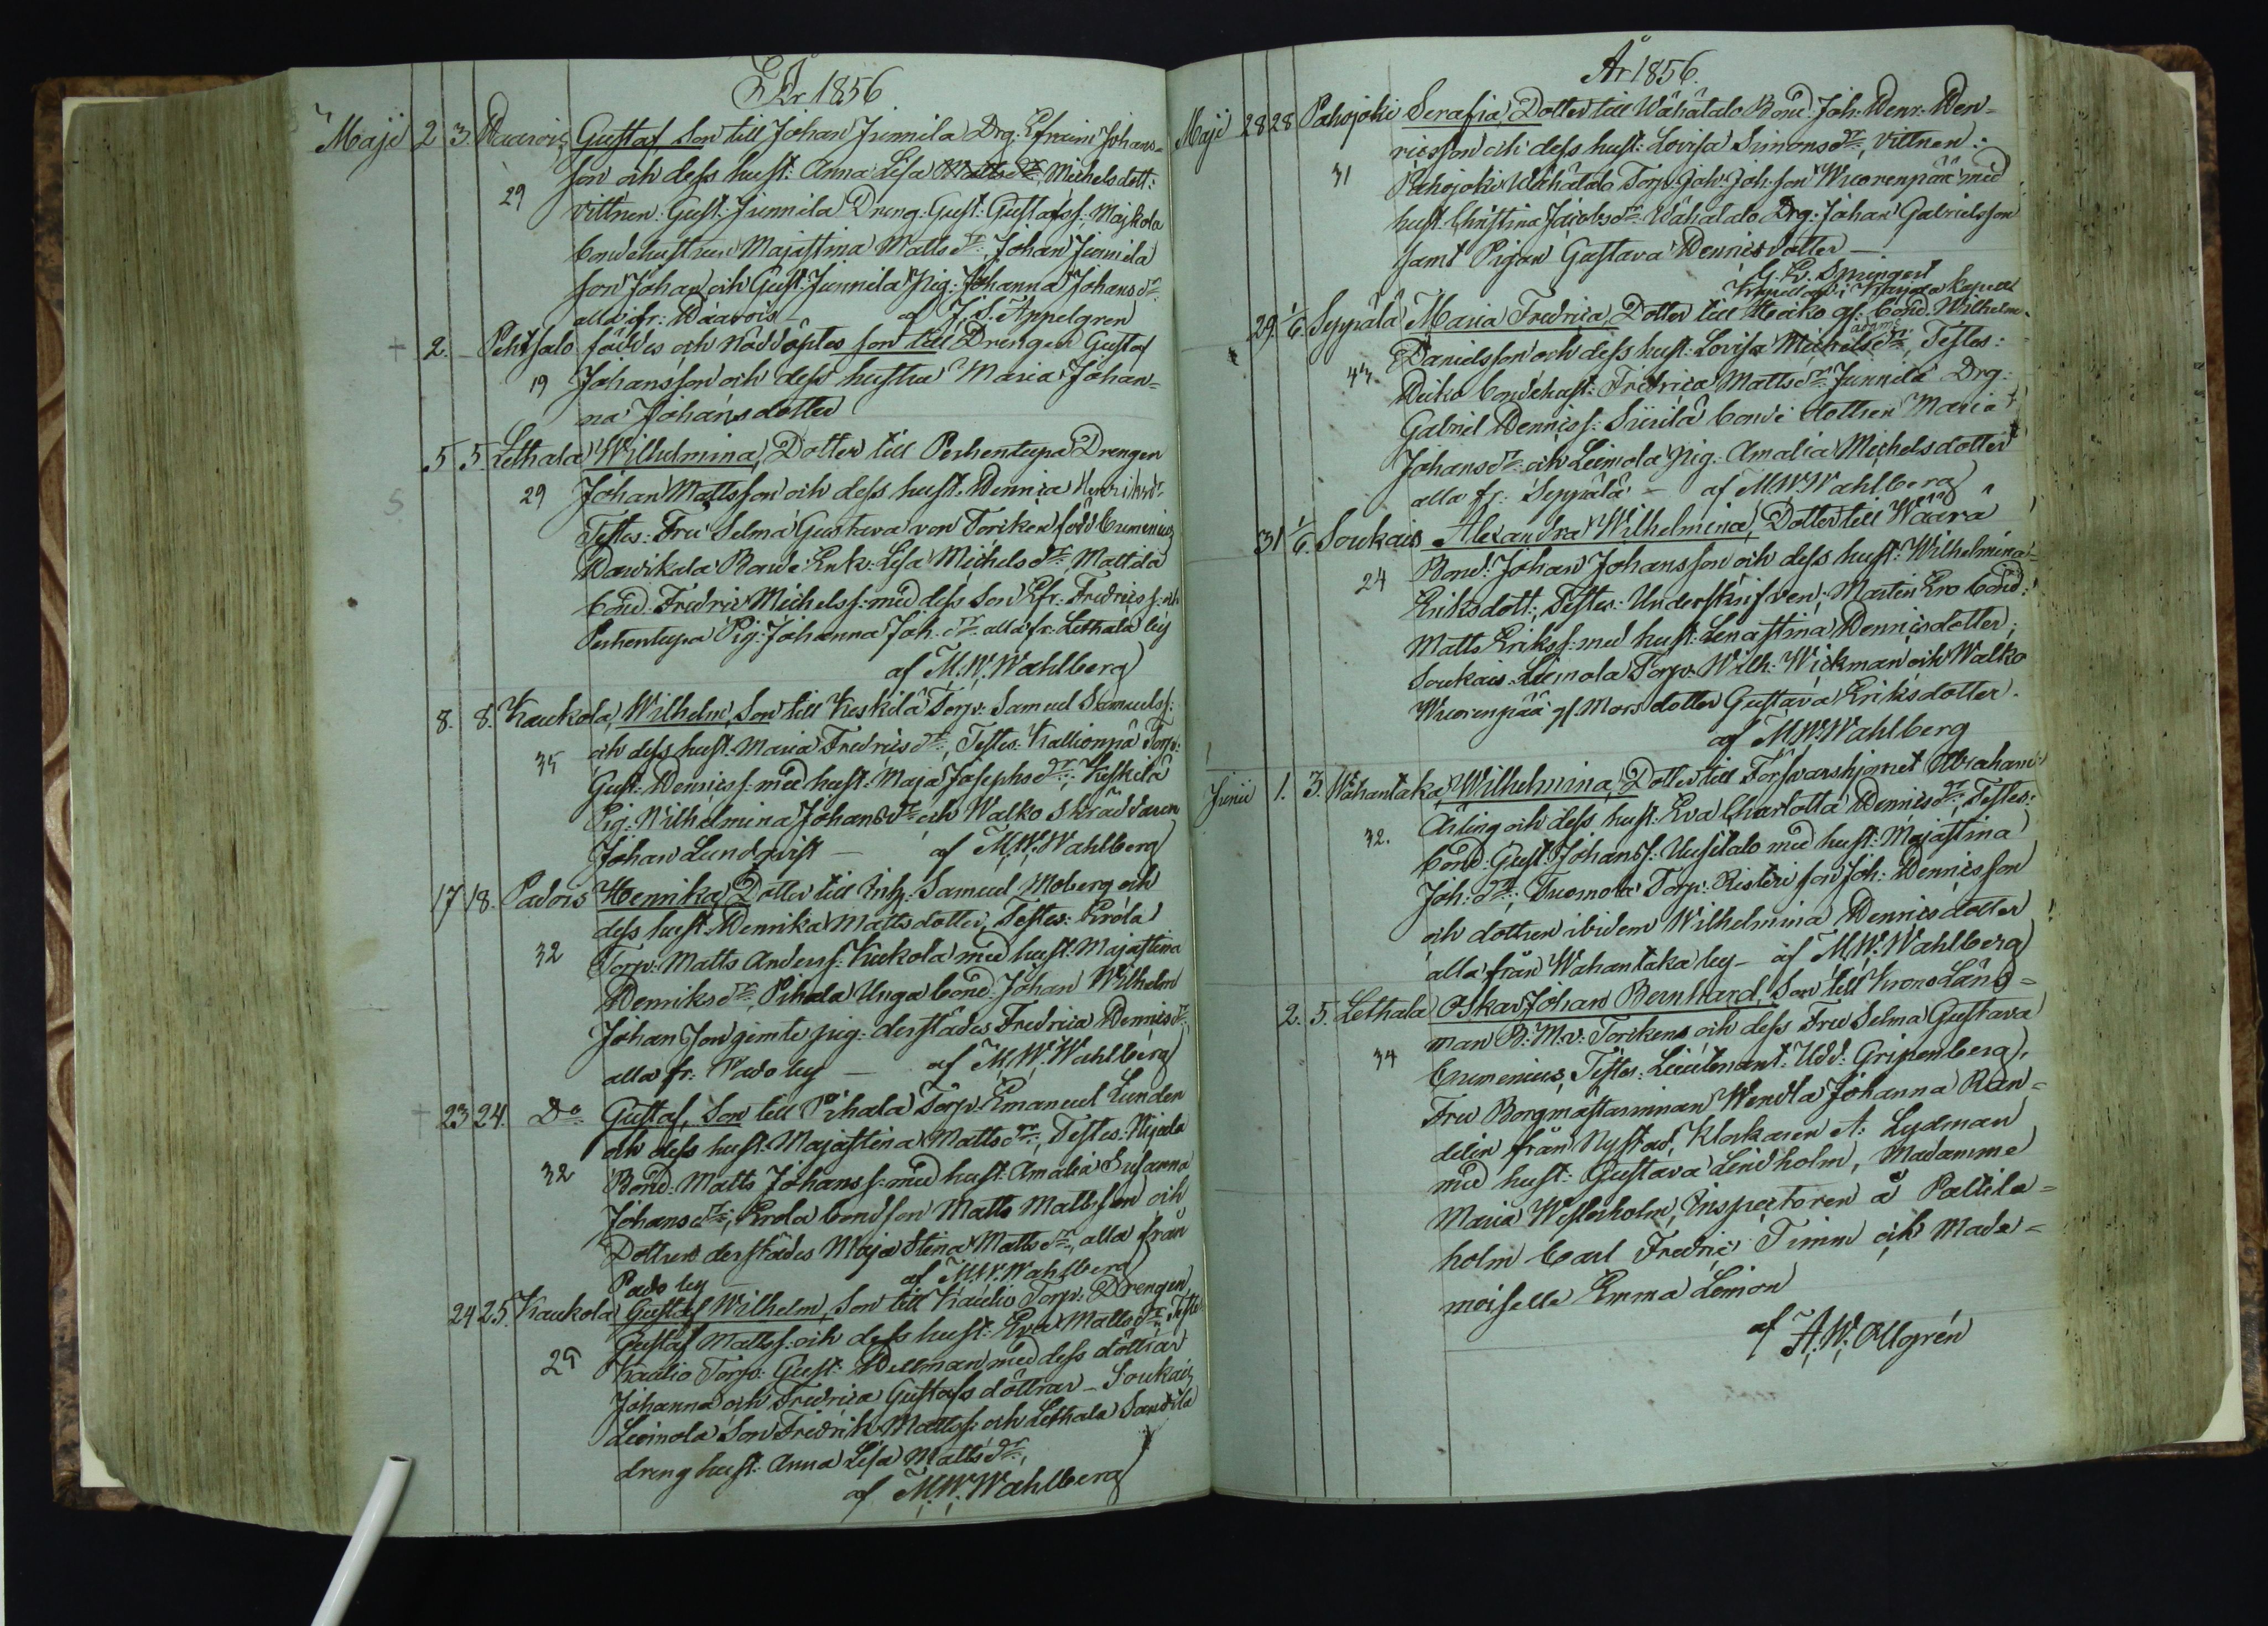 År 1856
Maji 2 3. Gustaf Son till Johan Junnila Drg: Efraim Johans-
son och dess hust: Anna Lisa Michelsdott:
29 vittnen: Gust: Junnila Dreng: Gust: Gustafss: Majkola
bondehustrun Majastina Mattsdr: Johan Junnila
son Johan och Gust: Junnila pig: Johanna Johansdr
alla fr: af J. S. Appelgren
2. Pehtsalo föddes och nöddöptes son till Drengen Gustaf
19 Johansson och dess hustru Maria Johan-
na Johansdotter
5 5 Lethala Wilhelmina, Dotter till Perhentupa Drengen
29 Johan Mattsson och dess hust: Henrica Henriksdr
Testes: Fru Selma Gustava von Torcken född Eumenius,
Bonde Enk: Lisa Michelsdr, Mattila
bond: Fredric Michelss: med dess Son Efr: Fredricss: och
Perhentupa Pig: Johanna Joh: dr alla fr: Lethala by
af M.W. Wahlberg
8. 8. Kaukola, Wilhelm, Son till Keskilä Torp: Samuel Samuelss:
35 och dess hust: Maria Fredricsdr, Testes: Kallionpä Torp:
Gust: Henricss: med hust: Maja Josephsdr; Keskilä
Pig: Wilhelmina Johansdr och Walko Skräddaren
Johan Lundqvist — af M.W. Wahlberg
17 18. Padois Henrika, Dotter till Inh: Samuel Moberg och
dess hust: Henrika Mattsdotter, Testes: Erola
32 Torp: Matts Anderss: Kukola med hust: Majastina
Henriksdr, Pihala Unga bond: Johan Wilhelm
Johansson jemte pig: derstädes Fredrica Henricsdr
alla fr: Pado by — af M.W. Wahlberg
23 24. Do Gustaf, Son till Pihala Torp: Emanuel Lunden
och dess hust: Majastina Mattsdr, Testes:
32 Bond: Matts Johanss: med hust: Amalia Susanna
Johansdr, Erola bondson Matts Mattsson och
Dottren derstädes Maja Stina Mattsdr, alla från
Pado by af M.W. Wahlberg
24 25. Kaukola Gustaf Wilhelm, Son till Kaulio Torp: Drengen
Gustaf Mattss: och dess hust: Eva Mattsdr, Teste
29 Kaulio Torp: Gust: Hellman, med dess döttrar
Johanna och Fredrica Gustafs döttrar – Soukais
Liemola Son Fredrik Mattss: och Lethala
dreng hust: Anna Lisa Mattsdr,
af M.W. Wahlberg
År 1856.
Maji 28 28 Pahojoki Serafia, Dotter till Wähätalo Bond: Joh: Henr: Hen-
ricsson och dess hust: Lovisa Simonsdr, vittnen:
31 Pahojoki Wähätalo Torp: Joh: Joh: son Wuorenpää med
hust: Christina Jacobsdr Wähätalo Drg: Johan Gabrielsson
samt Pigan Gustava Henricsdotter —
G. E. Springert
i kapell
29. 1/6. Seppälä Maria Fredrica, Dotter till Heiko gf: bond: Wilhelm
Danielsson och dess hust: Lovisa Adams dr, Testes:
44. Heiko bondehust: Fredrica Mattsdr Junnila Drg:
Gabriel Henricss: Siirilä bonde dottren Maria
Johansdr och Liemola pig: Amalia Michelsdotter
alla fr: Seppälä — af M.W. Wahlberg
31 1/6. Soukais Alexandra Wilhelmina, Dotter till Waara
Bond: Johan Johansson och dess hust: Wilhelmina
24 Eriksdott:, Testes: Underskrifven, Marten Ero bond:
Matts Erikss: med hust: Lenastina Henricsdotter;
Soukais Liemola Torp: Wilh: Wickman och Walko
Wuorenpää gf: Mors dotter Gustava Eriksdotter.
af M.W. Wahlberg
Junii 1. 3. Wähantaka, Wilhelmina, Dotter till Försvarshjonet Abraham
32. Ärling och dess hust: Eva Charlotta Henricsdr, Testes:
bond: Gust: Johanss: Uusitalo med hust: Majastina
Joh: dr; Tuomola Torp: Risteri son Joh: Henricsson
och dottren ibidem Wilhelmina Henricsdotter
alla från Wahantaka by – af M.W. Wahlberg
2. 5. Lethala Oskar Johan Bernhard, Son till Krono Läns-
man B: M. v: Torcken och dess Fru Selma Gustava
34 Eumenius, Testes: Lieutenant: Udd: Gripenberg,
Fru Borgmästarinnan Wendla Johanna Ran-
delin från Nystad, Klockaren A: Lydman
med hust: Gustava Lindholm, Madamme
Maria Westerholm, Inspectoren å Paltila-
holm Carl Fredric Timm och Made-
moiselle Emma Limon
af A. W. Allgrén